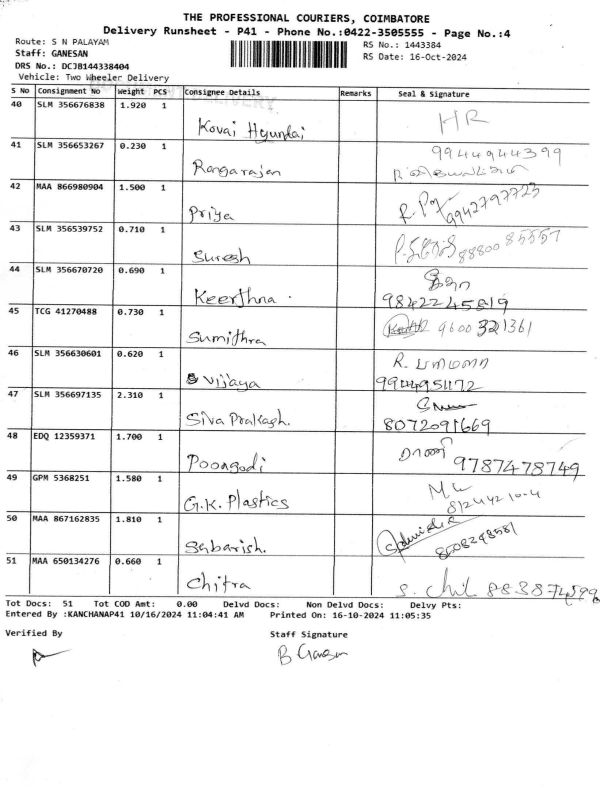 THE PROFESSIONAL COURIERS, COIMBATORE
Delivery Runsheet - P41 - Phone No.:0422-3505555 - Page No.:4
Route: S N PALAYAM RS No.: 1443384
Staff: GANESAN RS Date: 16-Oct-2024
DRS No.: DCJB144338404
Vehicle: Two Wheeler Delivery
S No Consignment No Weight PCS Consignee Details Remarks Seal & Signature
40 SLM 356676838 1.920 1 Kovai Hyundai HR
41 SLM 356653267 0.230 1 Rangarajan 99449 44399
42 MAA 866980904 1.500 1 Priya 9942797723
43 SLM 356539752 0.710 1 Suresh 88800 85557
44 SLM 356670720 0.690 1 Keerthna 9842245819
45 TCG 41270488 0.730 1 Sumithra 9600 321361
46 SLM 356630601 0.620 1 Vijaya R. யமுனா
9944951172
47 SLM 356697135 2.310 1 Siva Prakash. 8072091669
48 EDQ 12359371 1.700 1 Poongodi ராணி 9787478749
49 GPM 5368251 1.580 1 G.K. Plastics
50 MAA 867162835 1.810 1 Sabarish. 8608248581
51 MAA 650134276 0.660 1 Chitra
Tot Docs: 51 Tot COD Amt: 0.00 Delvd Docs: Non Delvd Docs: Delvy Pts:
Entered By :KANCHANAP41 10/16/2024 11:04:41 AM Printed On: 16-10-2024 11:05:35
Verified By Staff Signature
B Ganesan